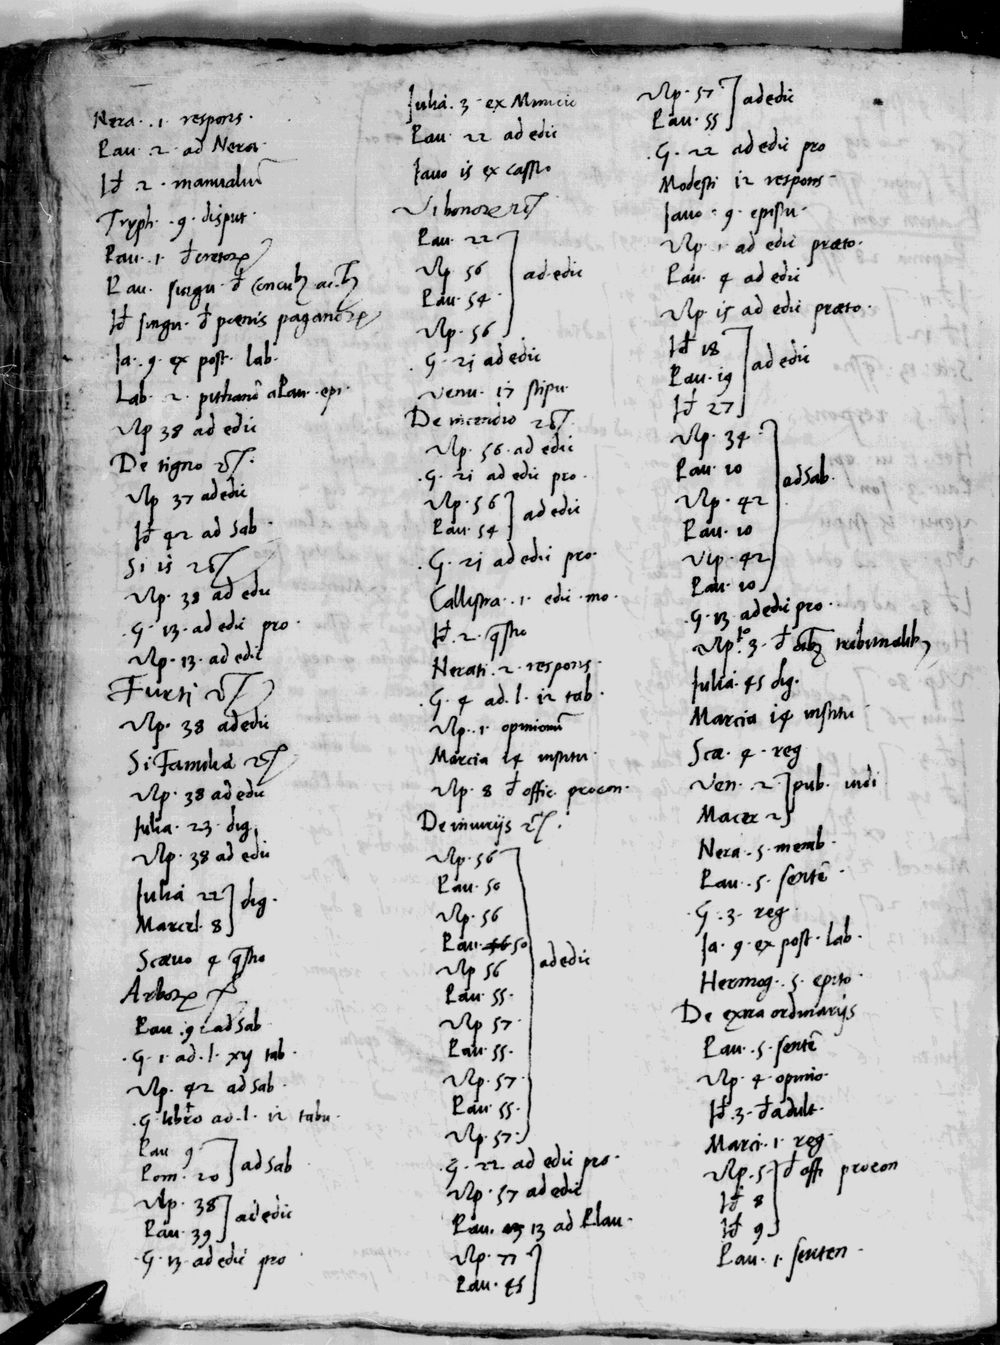 Nera . 1 respons.
Pau. 2. ad Nera.
Id 2. manualiū
Tryph. 9. disput.
Pau. 1. d cretoꝝ
Pau. singu. d concuꝫ
Id singu. d poenis paganoꝝ
Ia. 9. ex post. lab.
Lab. 2. pithanō a Pau. epi.
Vlp 38 ad edic
De tigno
Vlp 37 ad edic
Id 42 ad sab.
Si is
Vlp. 38 ad edic
G. 13. ad edic pro.
Vlp. 13. ad edic
Furti
Vlp. 38 ad edic
Si Familia
Vlp. 38 ad edic
Julia. 23. dig.
Vlp. 38 ad edic
Julia 22 ] dig.
Marcel. 8
Scæuo 4 q̄stio
Arboꝝ
Pau. 9. ad sab.
G. 1. ad. l. xij tab.
Vlp. 42 ad sab.
G. libro ad. l. 12 tabu.
Pau 9 ] ad sab
Pom. 20
Vlp. 38 ] ad edic
Pau. 39
G. 13 ad edic pro
Julia. 3. ex Minicio
Pau. 22 ad edic
Iauo 15 ex cassio
Vi bonoꝝ
Pau. 22 ] ad edic
Vlp 56
Pau. 54.
Vlp. 56
G. 21 ad edic
Venu. 17 stipu.
De incendio
Vlp. 56. ad edic
G. 21 ad edic pro.
Vlp. 56 ] ad edic
Pau. 54
G. 21 ad edic pro.
Callistra. 1. edic. mo.
Id. 2. q̄stio
Nerati. 2. respons.
G. 4 ad. l. 12 tab.
Vlp. 1. opinionū
Marcia 14 institu.
Vlp. 8 d offic. procon.
De iniurijs
Vlp. 56 ] ad edic
Pau. 50
Vlp. 56
Pau. 50
Vlp 56
Pau. 55.
Vlp 57
Pau. 55.
Vlp. 57.
Pau. 55.
Vlp. 57.
G. 22 ad edic pro.
Vlp. 57 ad edic
Pau. 13 ad Plau.
Vlp. 77 ]
Pau. 45
Vlp. 57 ] ad edic
Pau. 55
G. 22 ad edic pro
Modesti 12 respons.
Iauo. 9. epistu.
Vlp. 1. ad edic præto.
Pau. 4 ad edic
Vlp 15 ad edic præto.
Id 18 ] ad edic
Pau. 19
Id 27
Vlp. 34 ] ad sab.
Pau. 10
Vlp. 42
Pau. 10
Vlp. 42
Pau. 10
G. 13 ad edic pro.
Vlp. 3. d oībꝫ tribunalibꝫ
Julia. 45 dig.
Marcia 14 institu
Scæ. 4. reg
Ven. 2. ] pub. iudi
Macer 2
Nera. 5. memb.
Pau. 5. sentē.
G. 3. reg
Ia. 9. ex post. lab.
Hermog. 5. epito.
De extra ordinarijs
Pau. 5. sentē
Vlp. 4. opinio.
Id. 3. d adult.
Marci. 1. reg.
Vlp. 5 ] d offi procon
Id 8
Id 9
Pau. 1. senten.